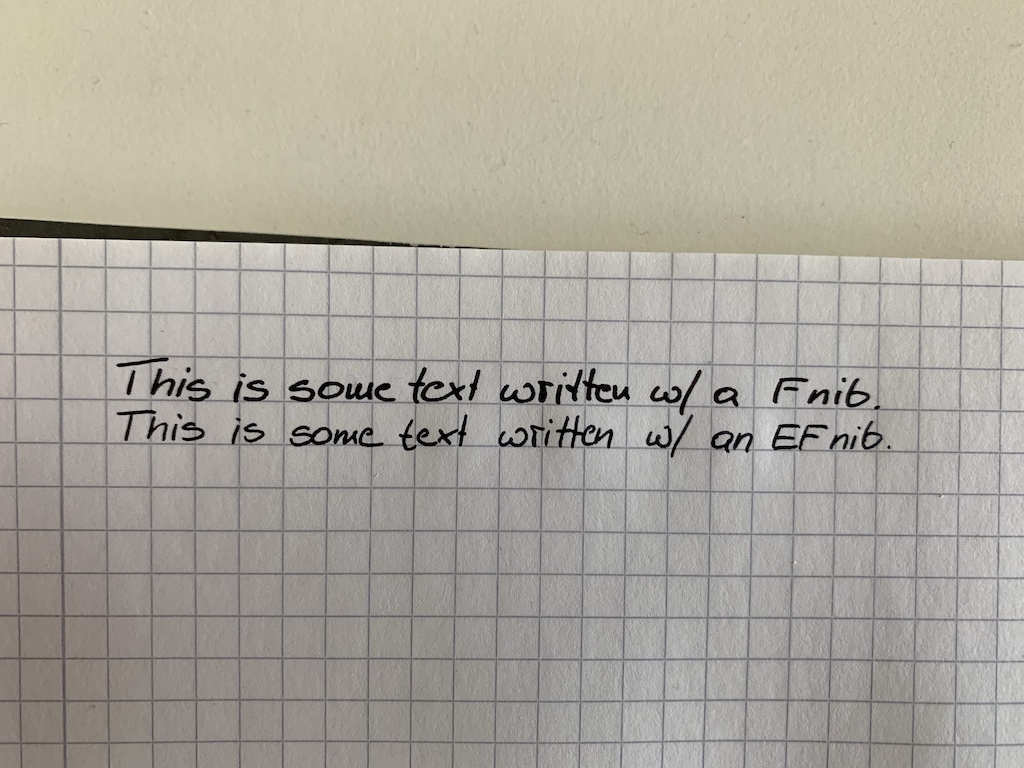 This is some text written w/ a F nib.
This is some text written w/ an EF nib.